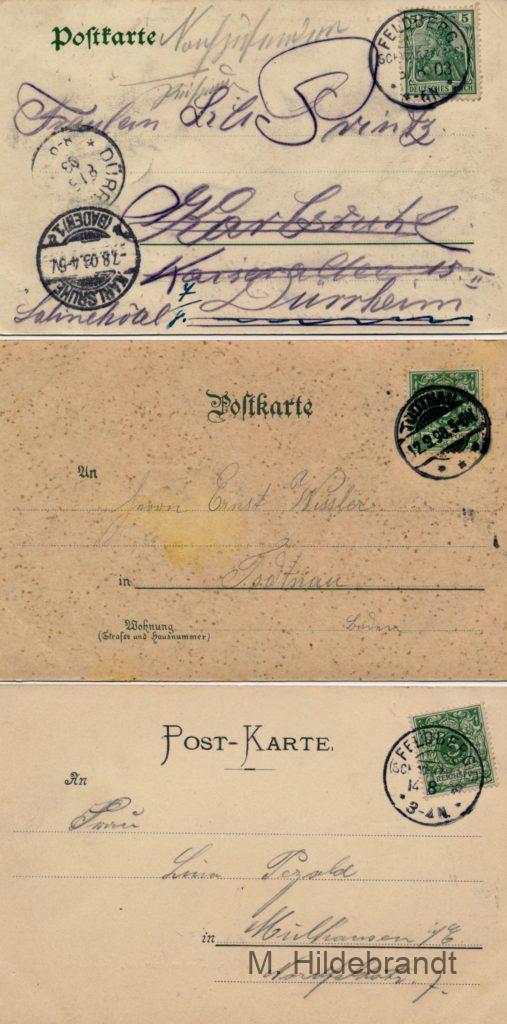 Postkarte
Nachzusenden
FELDBERG
03
4-6N
5
DEUTSCHES REICH
Fräulein Lili Printz
DÜRR
03
Karlsruhe
KARLSRUHE (BADEN) 1.
7.8.03.4-5N
Kaiserallee 15 II
Dürrheim
Postkarte
TODTNAU
12.9.98.5-6N
An
Herrn Ernst Wissler
in
Todtnau
Wohnung
(Straße und Hausnummer)
Baden
POST-KARTE.
FELDBERG
14 8
3-4N.
REICHSPOST
An
Frau
Lina Pezold
in
Mülhausen i/E
M. Hildebrandt